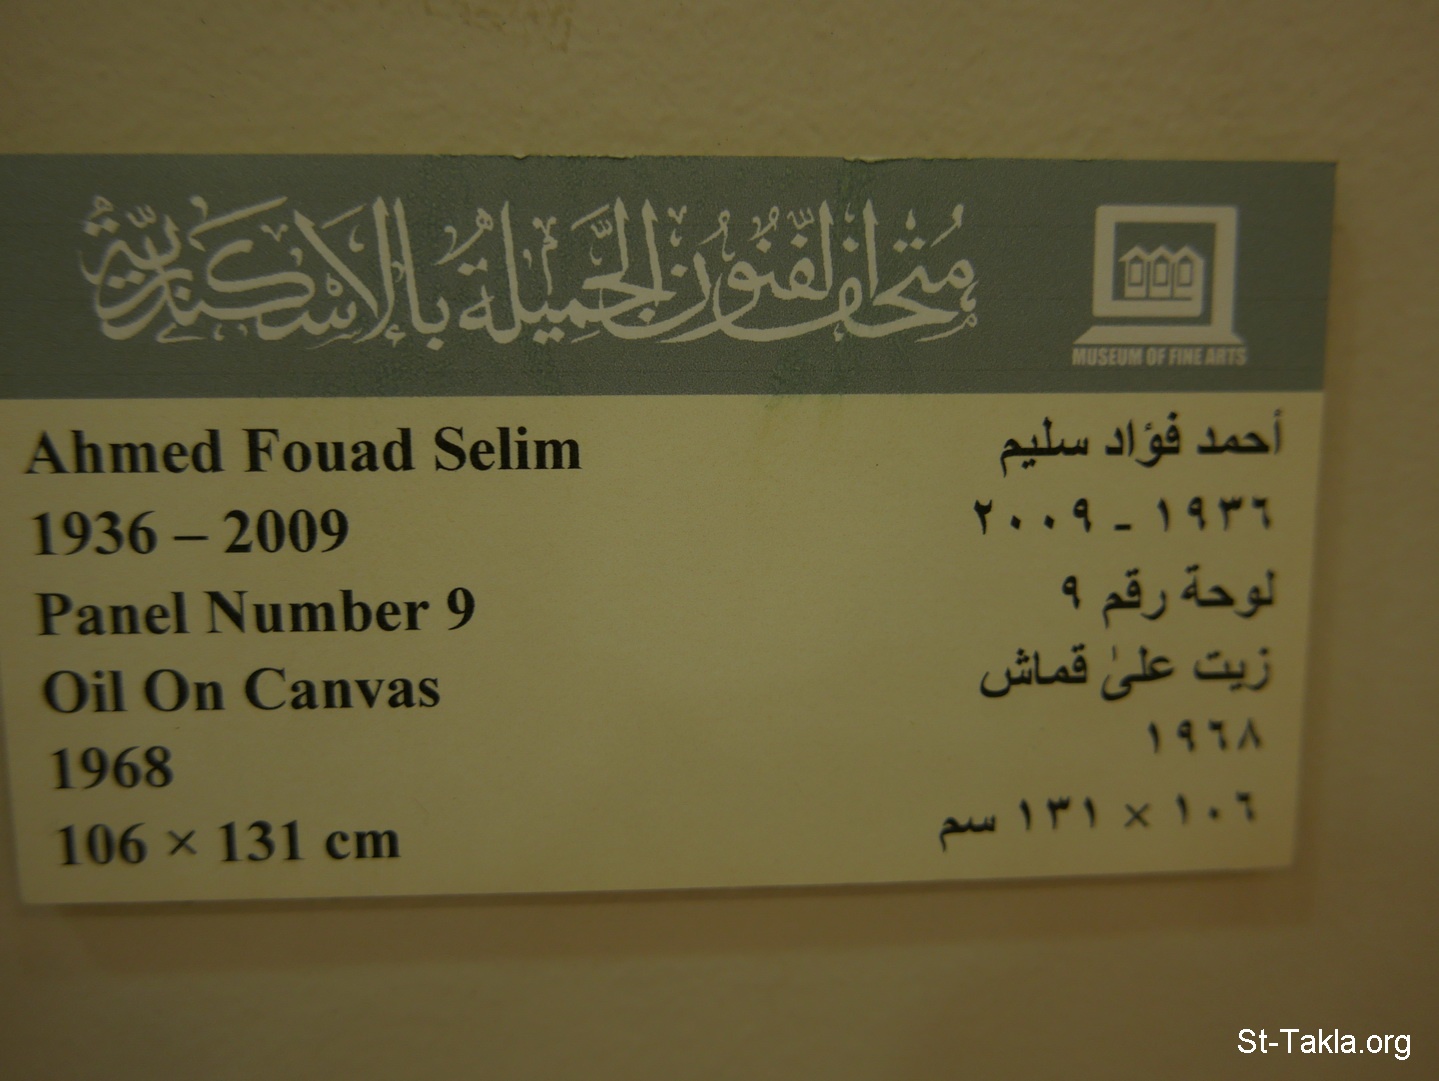 متحف الفنون الجميلة بالإسكندرية
MUSEUM OF FINE ARTS
Ahmed Fouad Selim
أحمد فؤاد سليم
1936 – 2009
١٩٣٦ - ٢٠٠٩
Panel Number 9
لوحة رقم ٩
Oil On Canvas
زيت على قماش
1968
١٩٦٨
106 × 131 cm
١٠٦ × ١٣١ سم
St-Takla.org